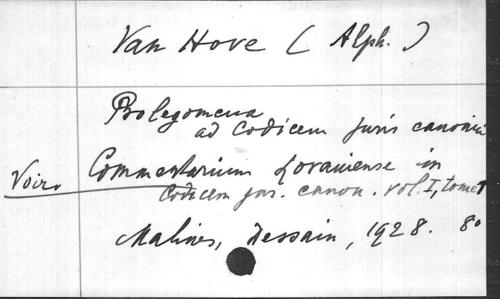 Van Hove (Alph.)
Prolegomena
ad Codicem Juris canonici
Voir. Commentarium Lovaniense in
Codicem jur. canon. vol. I, tome 1
Malines, Dessain, 1928. 8°